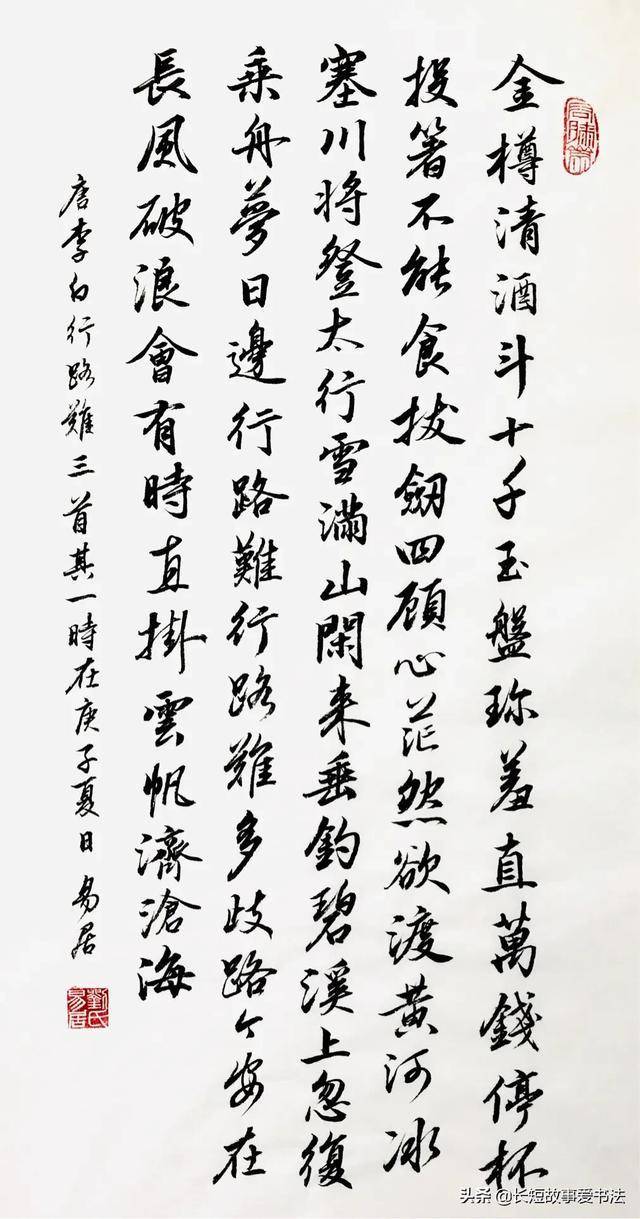 金樽清酒斗十千玉盤珍羞直萬錢停杯
投箸不能食拔劔四顧心茫然欲渡黃河冰
塞川將登太行雪滿山閑来垂釣碧溪上忽復
乘舟夢日邊行路難行路難多歧路今安在
長風破浪會有時直掛雲帆濟滄海
唐李白行路難三首其一時在庚子夏日易居
劉氏易居
头条 @长短故事爱书法